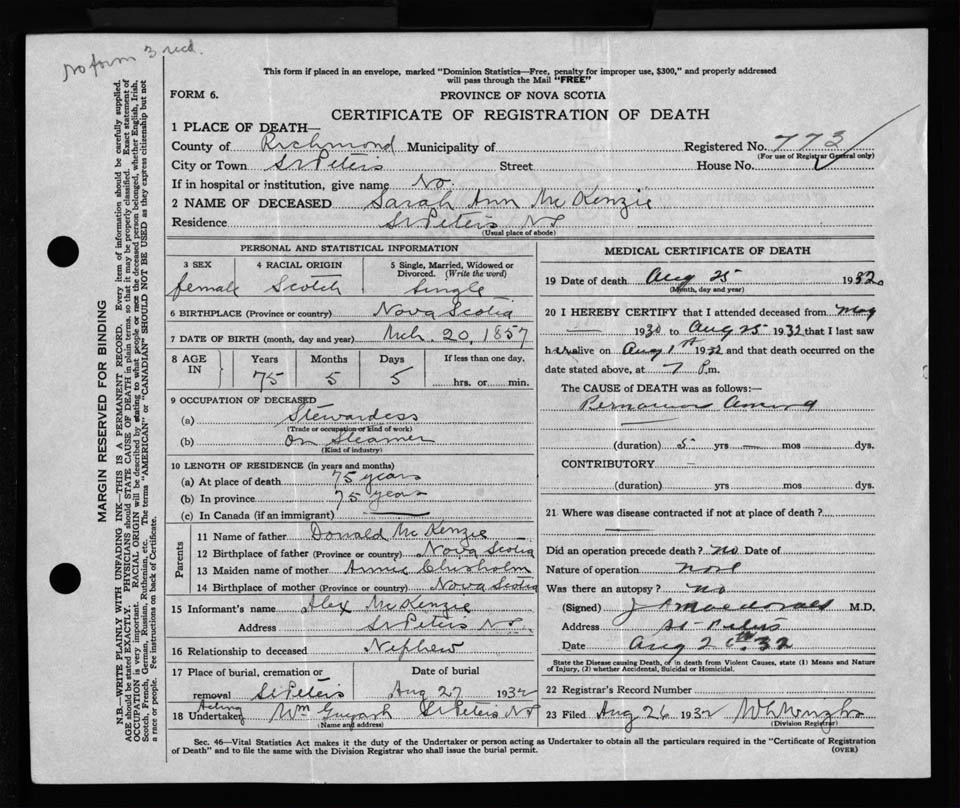 No form 3 recd.
This form if placed in an envelope, marked "Dominion Statistics—Free, penalty for improper use, $300," and properly addressed
will pass through the Mail "FREE"
FORM 6.
PROVINCE OF NOVA SCOTIA
CERTIFICATE OF REGISTRATION OF DEATH
1 PLACE OF DEATH—
County of Richmond Municipality of Registered No. 773
(For use of Registrar General only)
City or Town St Peters Street House No.
If in hospital or institution, give name No.
2 NAME OF DECEASED Sarah Ann McKenzie
Residence St Peters NS
(Usual place of abode)
PERSONAL AND STATISTICAL INFORMATION
3 SEX 4 RACIAL ORIGIN 5 Single, Married, Widowed or
Divorced. (Write the word)
female Scotch Single
6 BIRTHPLACE (Province or country) Nova Scotia
7 DATE OF BIRTH (month, day and year) Mch. 20, 1857
8 AGE Years Months Days If less than one day,
IN 75 5 5 hrs. or min.
9 OCCUPATION OF DECEASED
(a) Stewardess
(Trade or occupation or kind of work)
(b) on Steamer
(Kind of industry)
10 LENGTH OF RESIDENCE (in years and months)
(a) At place of death 75 years
(b) In province 75 years
(c) In Canada (if an immigrant)
Parents
11 Name of father Donald McKenzie
12 Birthplace of father (Province or country) Nova Scotia
13 Maiden name of mother Annie Chisholm
14 Birthplace of mother (Province or country) Nova Scotia
15 Informant's name Alex McKenzie
Address St Peters NS.
16 Relationship to deceased Nephew
17 Place of burial, cremation or Date of burial
removal St Peters Aug 27 1932
Acting
18 Undertaker Wm St Peters NS
(Name and address)
MEDICAL CERTIFICATE OF DEATH
19 Date of death Aug 25 1932
(Month, day and year)
20 I HEREBY CERTIFY that I attended deceased from May
1930 to Aug 25 1932 that I last saw
her alive on Aug 1st 1932 and that death occurred on the
date stated above, at 7 P.m.
The CAUSE of DEATH was as follows:—
Pernicious Anemia
(duration) 5 yrs mos dys.
CONTRIBUTORY
(duration) yrs mos dys.
21 Where was disease contracted if not at place of death?
Did an operation precede death? no Date of
Nature of operation none
Was there an autopsy? no
(Signed) J A Macdonald M.D.
Address St-Peters
Date Aug 26th 32
State the Disease causing Death, or in death from Violent Causes, state (1) Means and Nature
of Injury, (2) whether Accidental, Suicidal or Homicidal.
22 Registrar's Record Number
23 Filed Aug 26 1932
(Division Registrar)
Sec. 46—Vital Statistics Act makes it the duty of the Undertaker or person acting as Undertaker to obtain all the particulars required in the "Certificate of Registration
of Death" and to file the same with the Division Registrar who shall issue the burial permit.
(OVER)
MARGIN RESERVED FOR BINDING
N.B.—WRITE PLAINLY WITH UNFADING INK—THIS IS A PERMANENT RECORD. Every item of information should be carefully supplied.
AGE should be stated EXACTLY. PHYSICIANS should STATE CAUSE OF DEATH in plain terms, so that it may be properly classified. Exact statement of
OCCUPATION is very important. RACIAL ORIGIN will be described by stating to what people or race the deceased person belonged, whether English, Irish,
Scotch, French, German, Russian, Ruthenian, etc. The terms "AMERICAN" or "CANADIAN" SHOULD NOT BE USED as they express citizenship but not
a race or people. See instructions on back of Certificate.